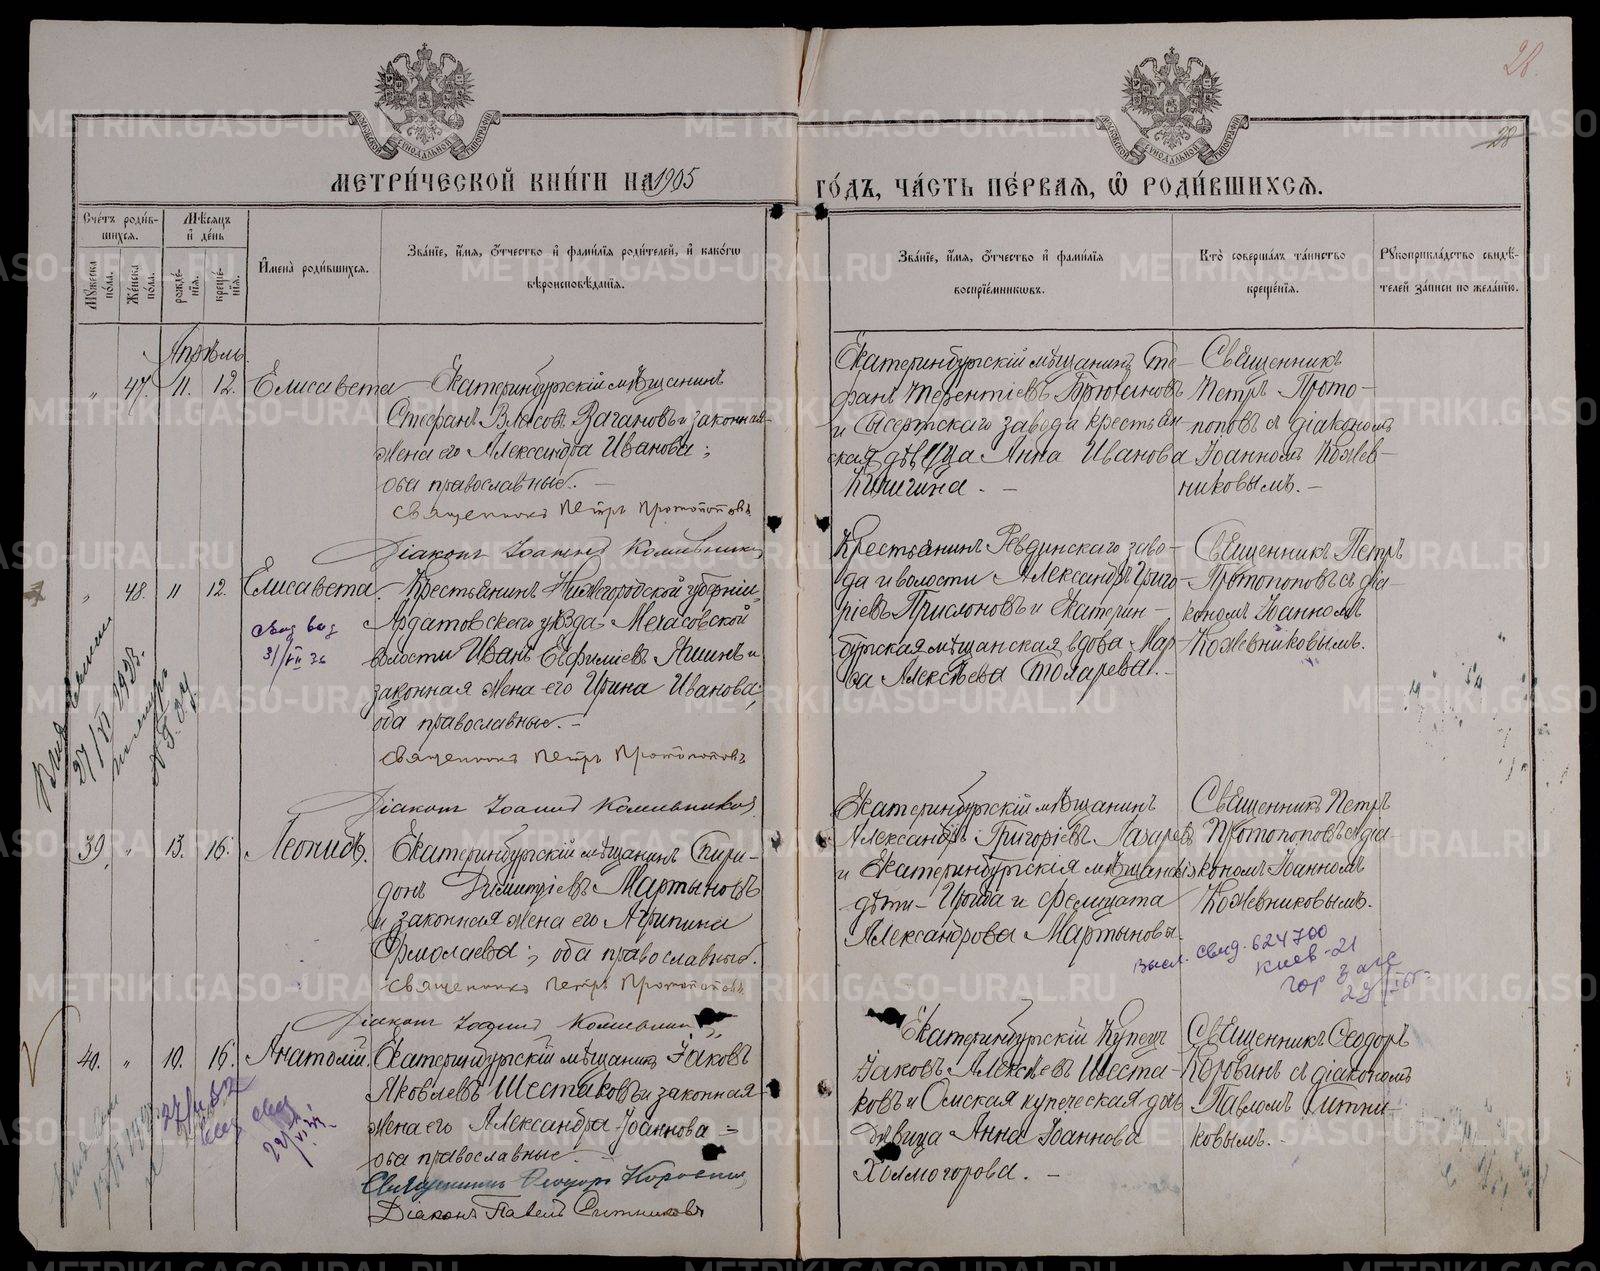 28.
28
МЕТРИ́ЧЕСКОЙ КНИ́ГИ НА 1905
ГО́ДЪ, ЧА́СТЬ ПЕ́РВАЯ, Ѿ РОДИ́ВШИХСЯ.
Сче́тъ роди́в-
шихся.
Мѣ́сяцъ
и де́нь
Мꙋ́жеска по́ла.
Же́нска по́ла.
рожде́-
нїя.
креще́-
нїя.
И҆мена̀ роди́вшихся.
Зва́нїе, и҆́мя, ѻ҆́тчество и҆ фами́лїя роди́телей, и҆ како́гѡ
вѣроисповѣ́данїя.
Зва́нїе, и҆́мя, ѻ҆́тчество и҆ фами́лїя
воспрїе́мникѡвъ.
Кто̀ соверша́лъ та́инство
креще́нїя.
Рꙋкоприкла́дство свидѣ́-
телей за́писи по жела́нїю.
Апрѣль.
" 47. 11. 12. Елисавета
Екатеринбургскій мѣщанинъ
Стефанъ Власовъ Ваганов и законная
жена его Александра Иванова;
оба православные. —
Священникъ Петръ Протопоповъ
Діаконъ Іоаннъ Кожевников
Екатеринбургскій мѣщанинъ Сте-
фанъ Терентіевъ Брюхановъ
и Сысертскаго завода крестьян-
ская дѣвица Анна Иванова
Кичигина. —
Священникъ
Петръ Прото-
поповъ съ діакономъ
Іоанномъ Кожев-
никовымъ. —
" 48. 11 12. Елисавета.
Крестьянинъ Нижегородской губерніи,
Ардатовского уѣзда, Мечасовской
волости Иванъ Евфиміевъ Яшинъ и
законная жена его Ирина Иванова;
оба православные. —
Священникъ Петръ Протопоповъ
Діаконъ Іоаннъ Кожевников
Крестьянинъ Ревдинскаго заво-
да и волости Александръ Григо-
ріевъ Прислоновъ и Екатерин-
бургская мѣщанская вдова Мар-
ѳа Алексѣева Столарева. —
Священникъ Петръ
Протопоповъ съ діа-
кономъ Іоанномъ
Кожевниковымъ.
39. " 13. 16. Леонидъ.
Екатеринбургскій мѣщанинъ Спири-
донъ Димитріевъ Мартыновъ
и законная жена его Агрипина
Ермолаева; оба православные.
Священникъ Петръ Протопоповъ
Діаконъ Іоаннъ Кожевник
Екатеринбургскій мѣщанинъ
Александръ Григоріевъ Лазарев
и Екатеринбургскія мѣщанскія
дѣти — Ираида и Фелицата
Александрова Мартыновы.
Священникъ Петръ
Протопоповъ съ діа-
кономъ Іоанномъ
Кожевниковымъ.
Высл. Свид. 624700
Киев-21
гор загс
40. " 10. 16. Анатолій.
Екатеринбургскій мѣщанинъ Іаковъ
Яковлевъ Шестаковъ и законная
жена его Александра Іоаннова =
оба православные.
Священникъ Ѳеодоръ Коровинъ
Діаконъ Павелъ Ситниковъ
Екатеринбургскій Купецъ
Іаковъ Алексѣевъ Шеста-
ковъ и Омская купеческая дочь
Дѣвица Анна Іоаннова
Холмогорова. —
Священникъ Ѳеодоръ
Коровинъ съ діакономъ
Павломъ Ситни-
ковымъ. —
METRIKI.GASO-URAL.RU